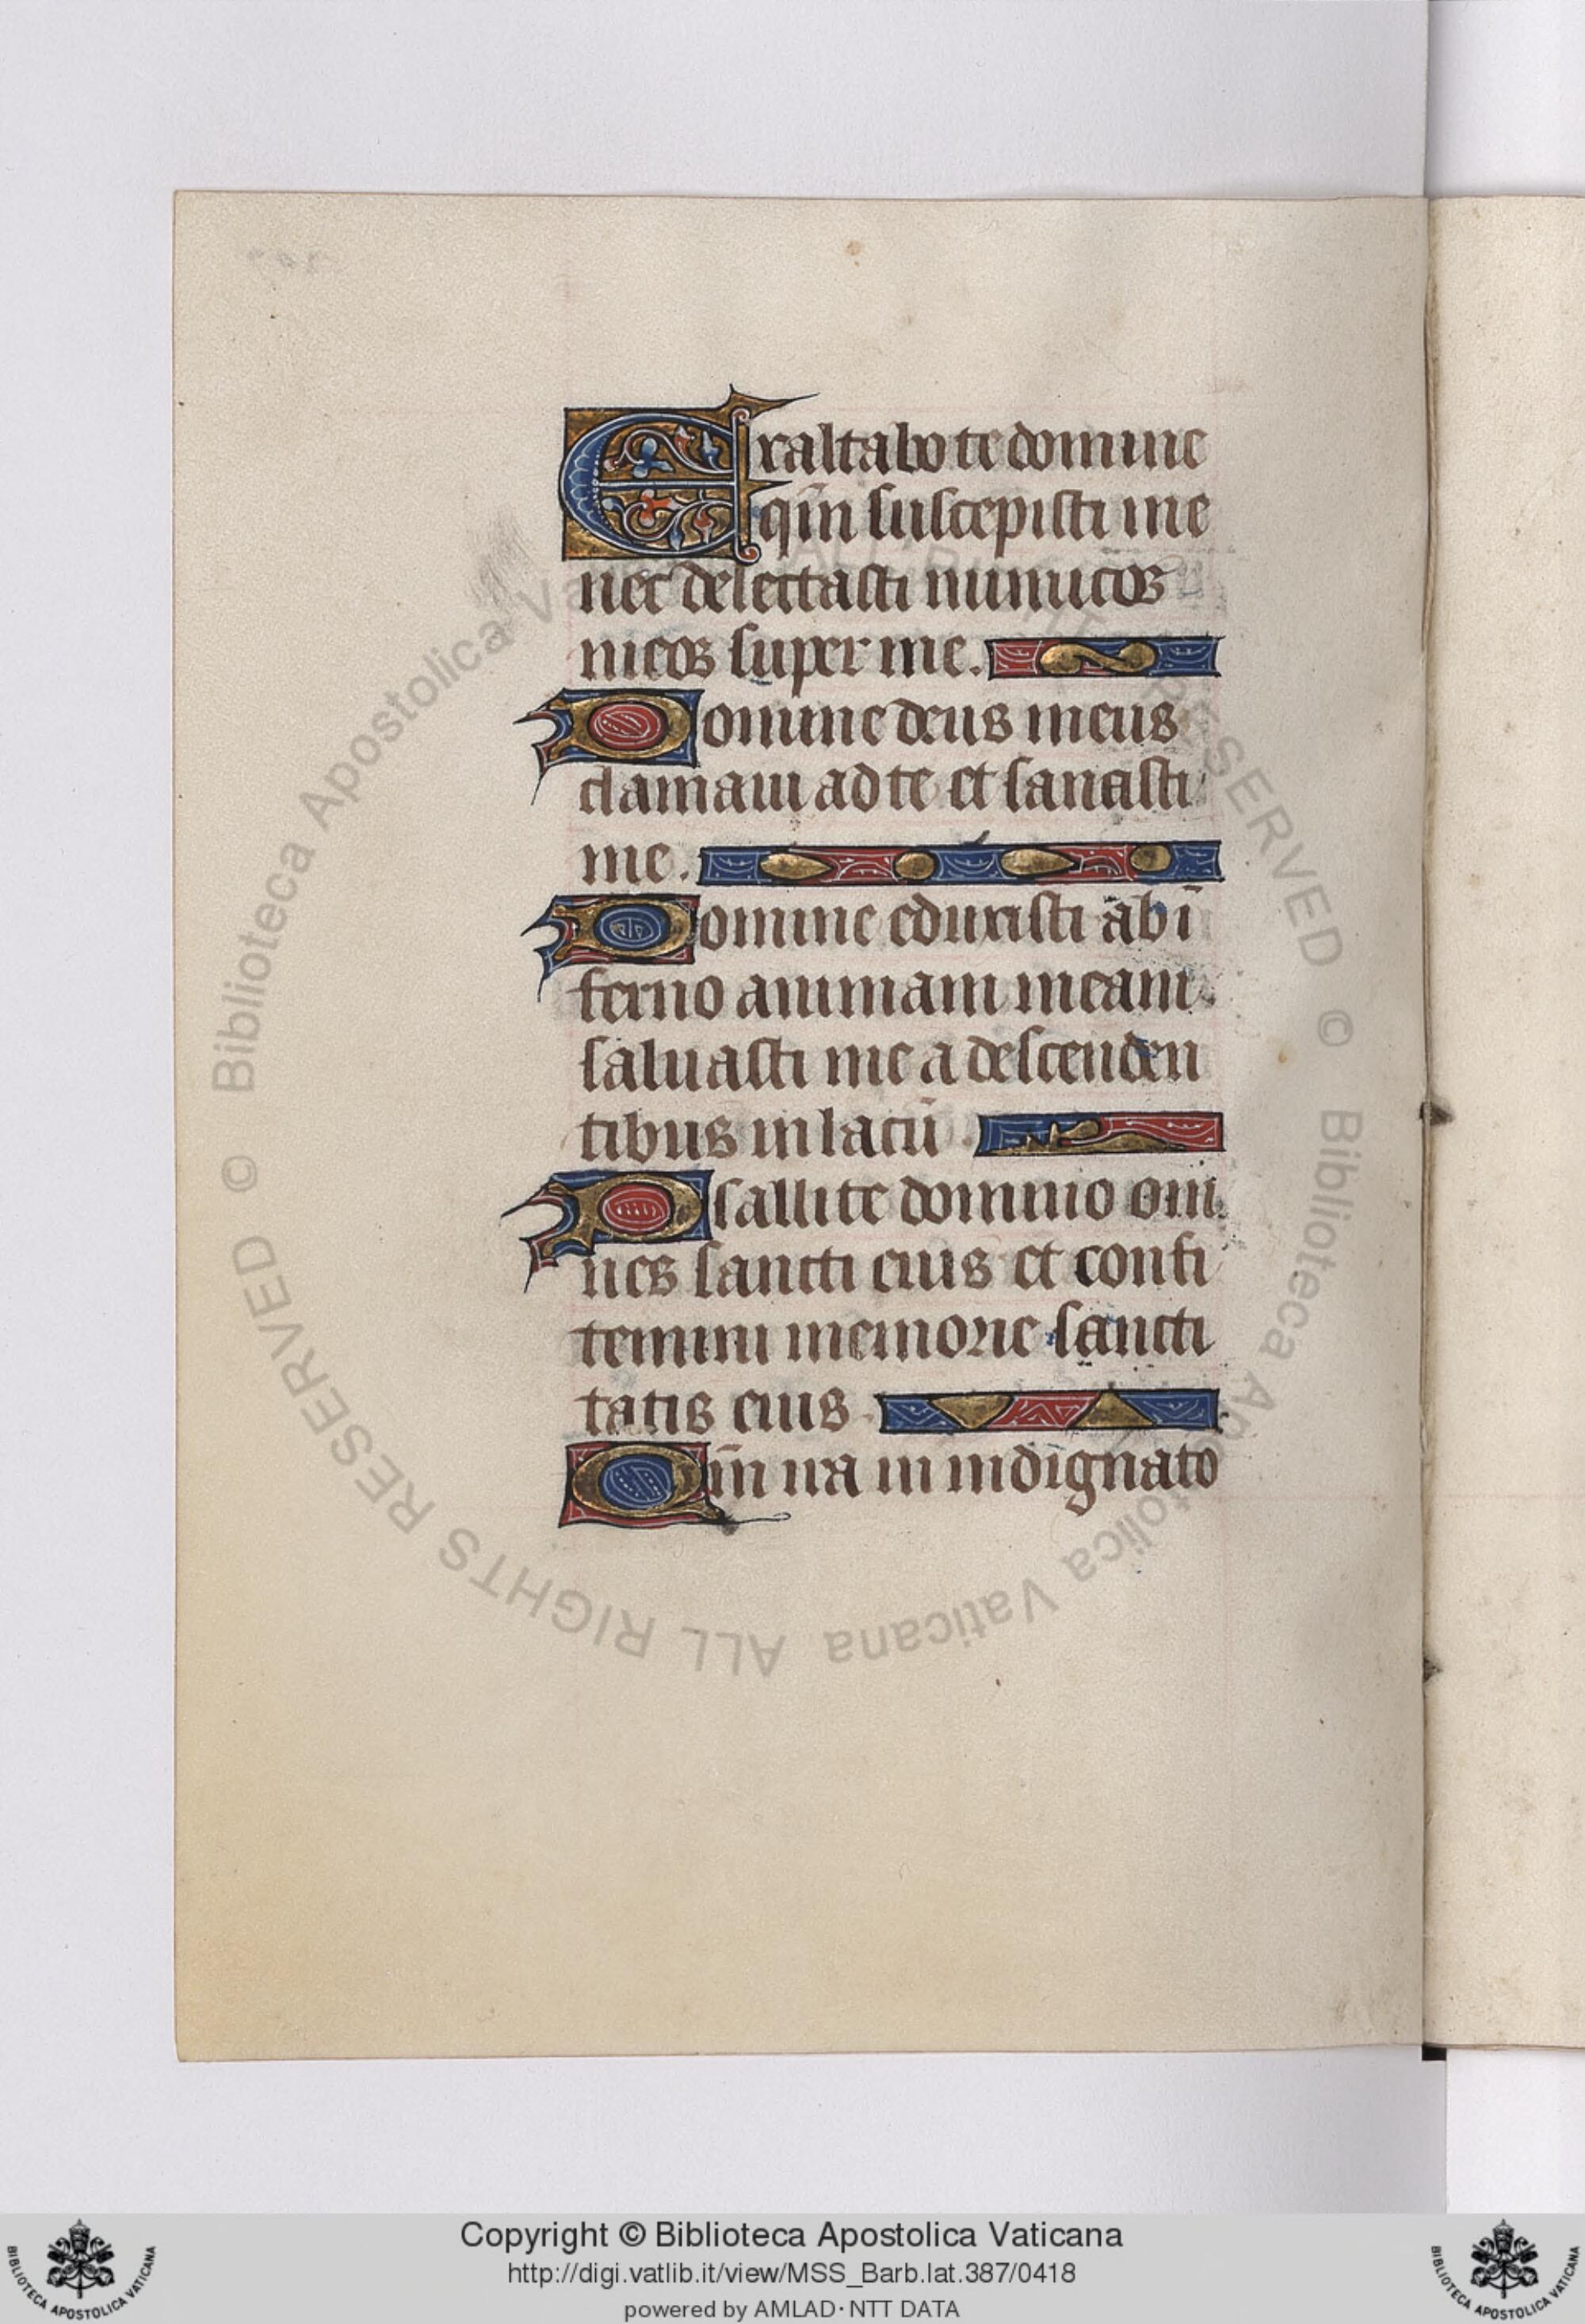 Exaltabo te domine
qm̄ suscepisti me
nec delectasti inimicos
meos super me.
Domine deus meus
clamaui ad te et sanasti
me.
Domine eduxisti ab ī
ferno animam meam
saluasti me a descenden
tibus in lacū.
Psallite domino om
nes sancti eius et confi
temini memorie sancti
tatis eius.
Qm̄ ira in indignato
© Biblioteca Apostolica Vaticana ALL RIGHTS RESERVED © Biblioteca Apostolica Vaticana ALL RIGHTS RESERVED
Copyright © Biblioteca Apostolica Vaticana
http://digi.vatlib.it/view/MSS_Barb.lat.387/0418
powered by AMLAD·NTT DATA
BIBLIOTECA APOSTOLICA VATICANA
BIBLIOTECA APOSTOLICA VATICANA